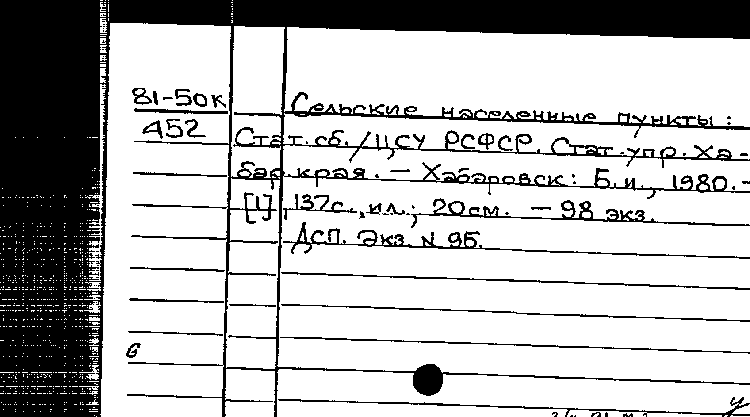 81-50к Сельские населенные пункты:
452 Стат. сб. / ЦСУ РСФСР. Стат. упр. Ха-
бар. края. — Хабаровск: Б. и., 1980. —
[1], 137с., ил.; 20см. — 98 экз.
ДСП. Экз. N 95.
б